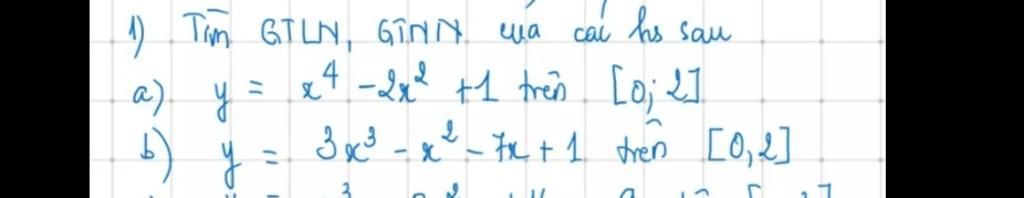 1) Tìm GTLN, GTNN của các hs sau
a) y = x⁴ - 2x² + 1 trên [0; 2]
b) y = 3x³ - x² - 7x + 1 trên [0, 2]